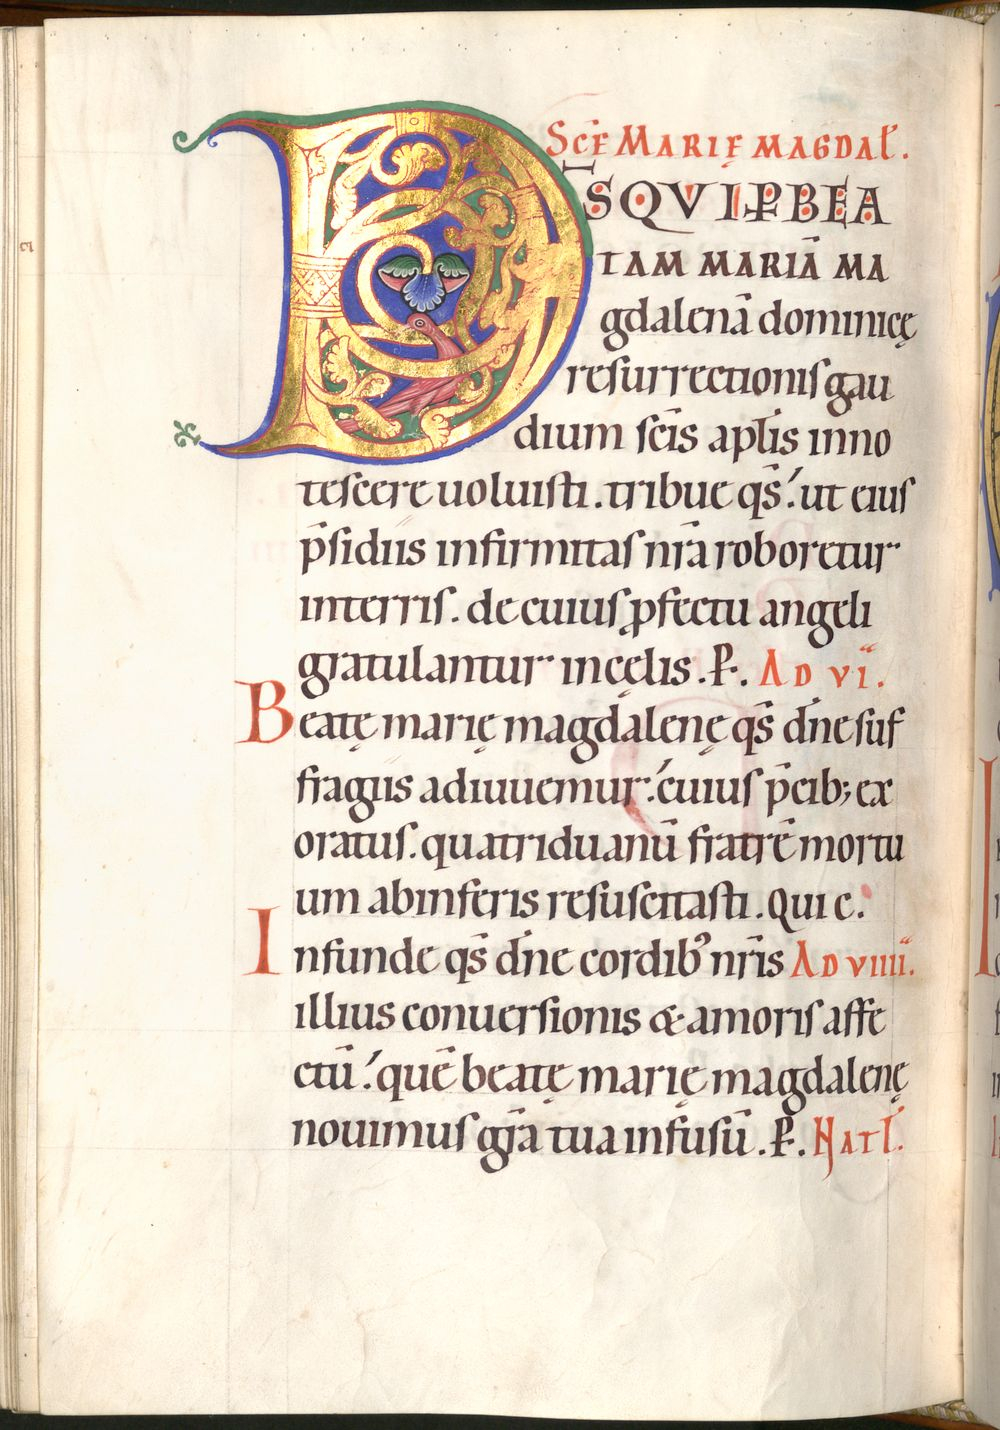 SCĒ MARIĘ MAGDAL̄.
DS QVI P BEA
TAM MARIĀ MA
gdalenā dominicę
resurrectionis gau
dium sc̄is ap̄lis inno
tescere uoluisti. tribue qs̄ ut eius
p̄sidiis infirmitas nr̄a roboretur
interris. de cuius ꝓfectu angeli
gratulantur in cęlis. P. AD VI.
Beatę marię magdalenę qs̄ dn̄e suf
fragiis adiuuemur. cuius p̄cib; ex
oratus. quatriduanū fratrē mortu
um abinferis resuscitasti. Qui c.
Infunde qs̄ dn̄e cordibꝰ nr̄is AD VIIII.
illius conuersionis & amoris affe
ctū quē beatę marię magdalenę
nouimus gr̄a tua infusū. P. NATL̄.